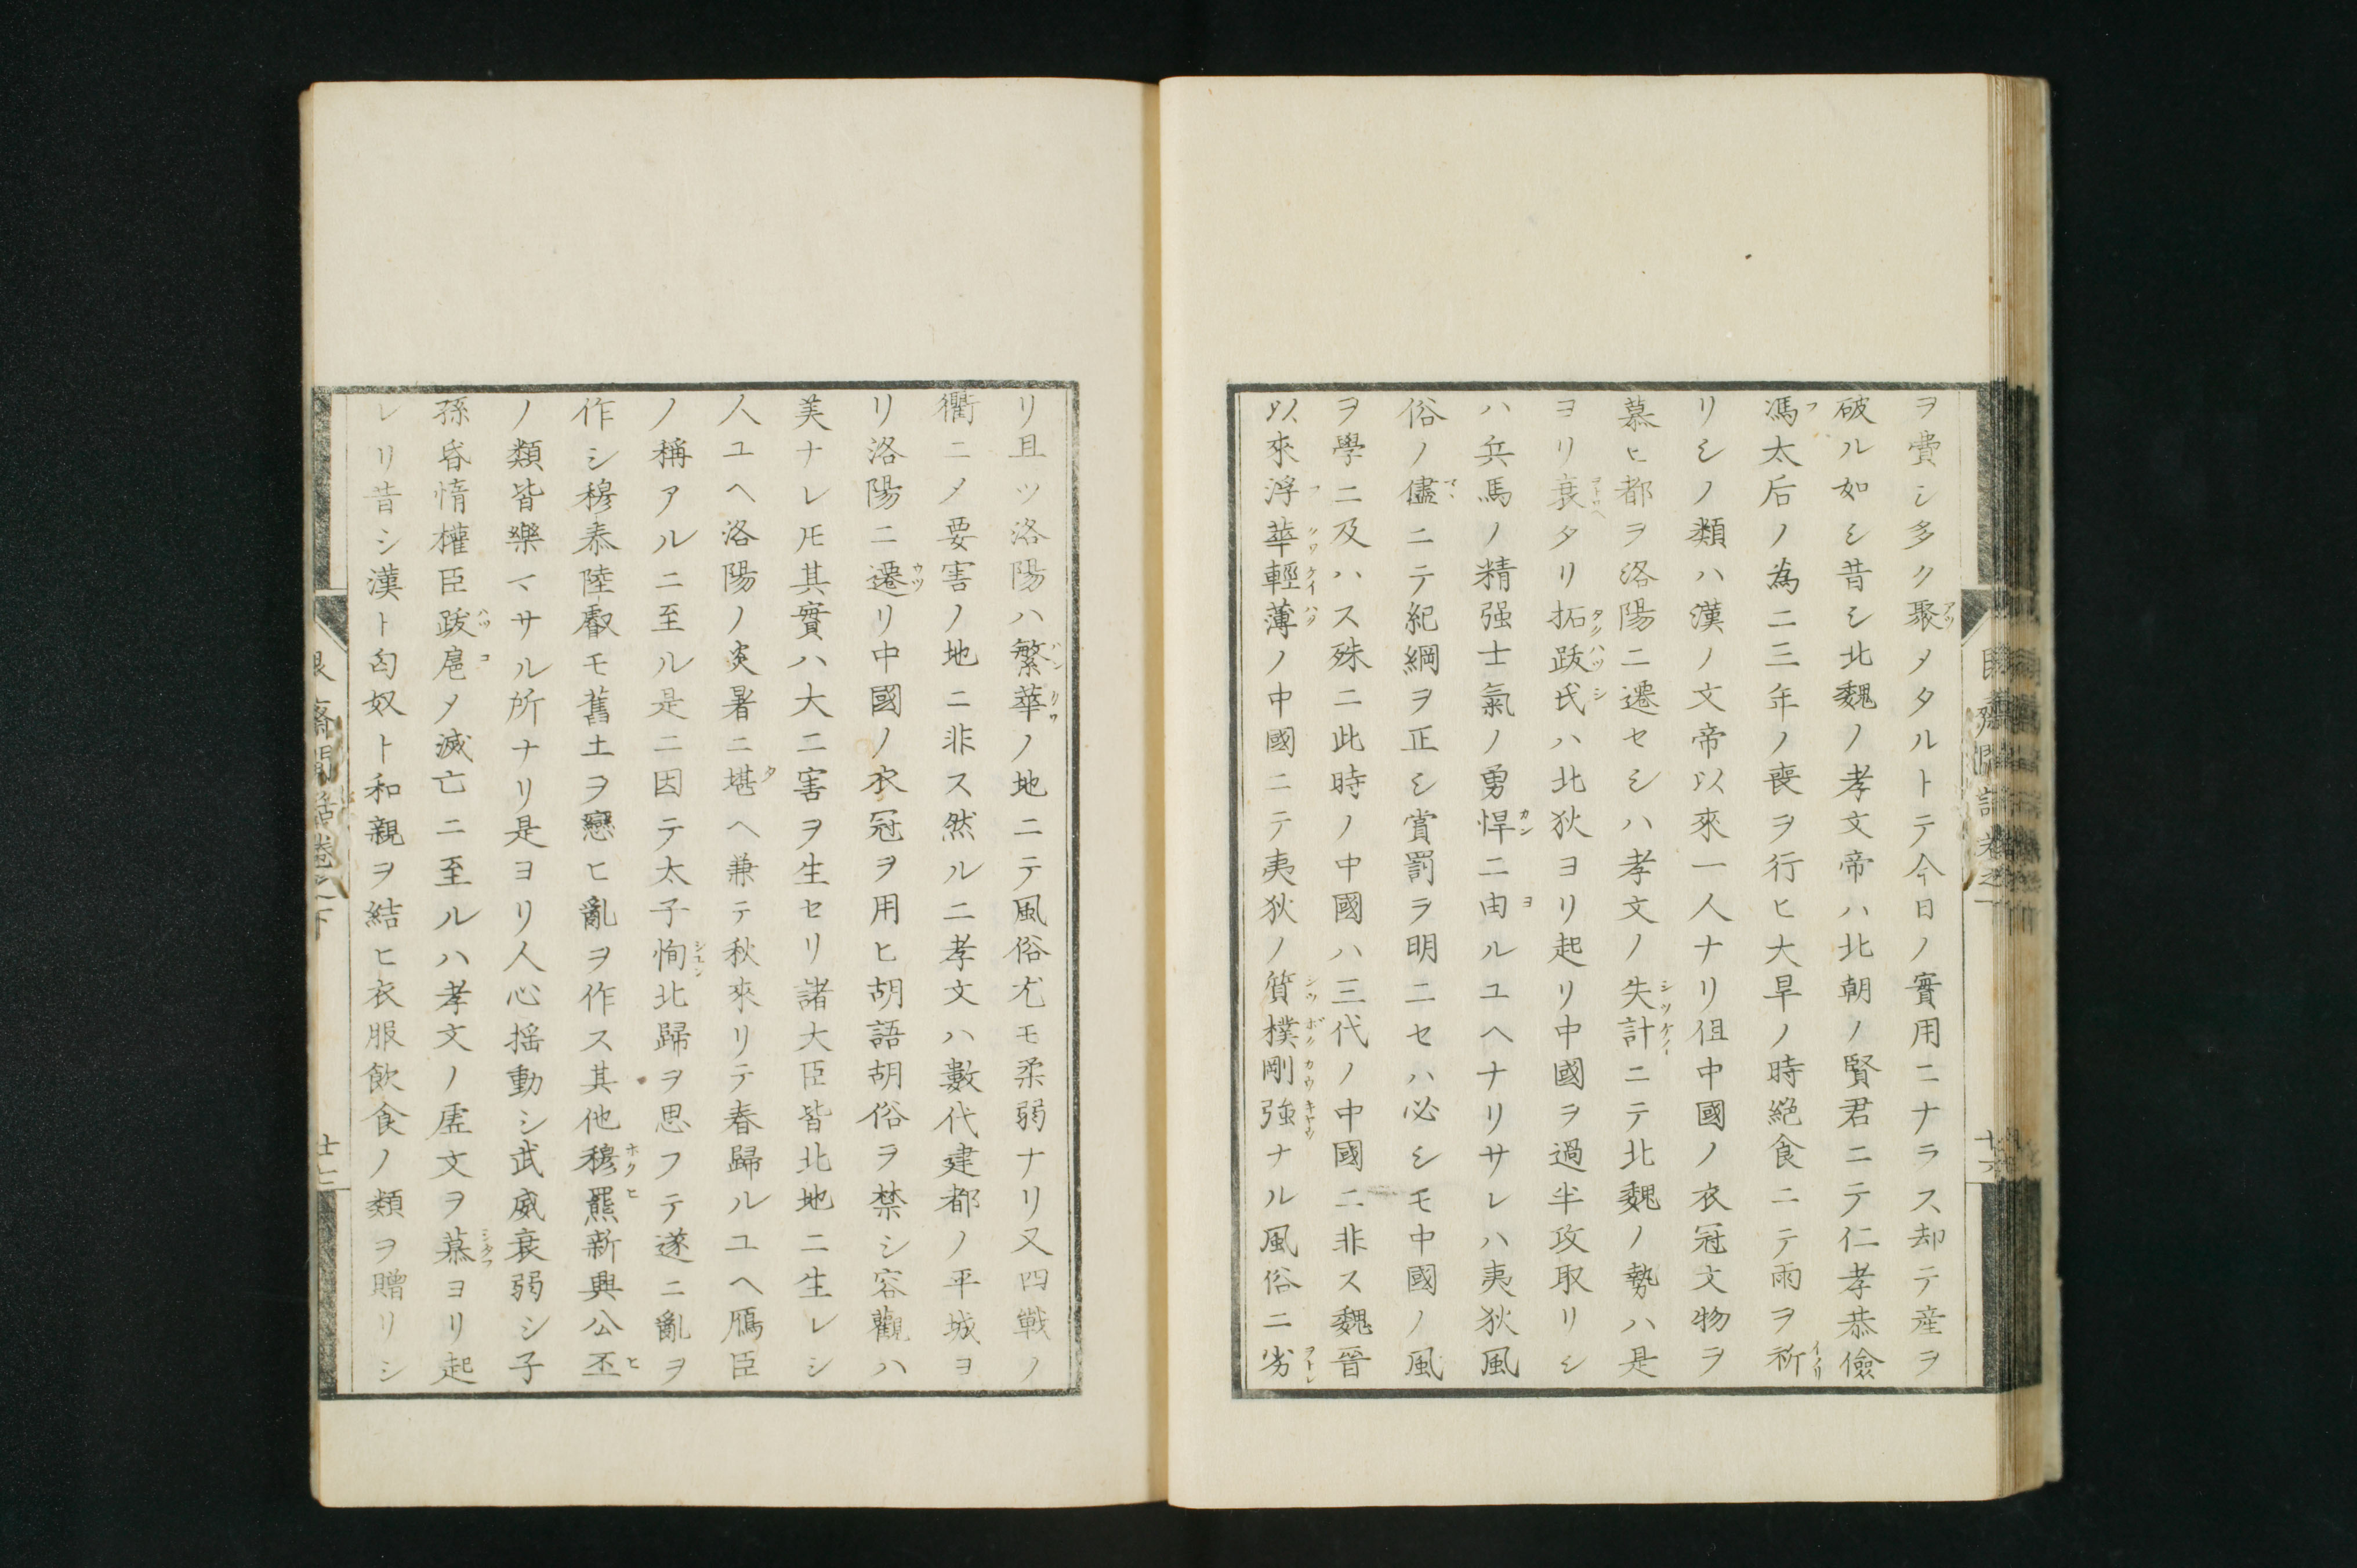 ヲ費シ多ク聚メタルトテ今日ノ實用ニナラス却テ産ヲ
破ル如シ昔シ北魏ノ孝文帝ハ北朝ノ賢君ニテ仁孝恭儉
馮太后ノ為ニ三年ノ喪ヲ行ヒ大旱ノ時絶食ニテ雨ヲ祈
リシノ類ハ漢ノ文帝以來一人ナリ伹中國ノ衣冠文物ヲ
慕ヒ都ヲ洛陽ニ遷セシハ孝文ノ失計ニテ北魏ノ勢ハ是
ヨリ衰タリ拓跋氏ハ北狄ヨリ起リ中國ヲ過半攻取リシ
ハ兵馬ノ精强士氣ノ勇悍ニ由ルユヘナリサレハ夷狄風
俗ノ儘ニテ紀綱ヲ正シ賞罰ヲ明ニセハ必シモ中國ノ風
ヲ學ニ及ハス殊ニ此時ノ中國ハ三代ノ中國ニ非ス魏晉
以來浮華輕薄ノ中國ニテ夷狄ノ質樸剛強ナル風俗ニ劣
リ且ツ洛陽ハ繁華ノ地ニテ風俗尤モ柔弱ナリ又四戰ノ
衢ニノ要害ノ地ニ非ス然ルニ孝文ハ數代建都ノ平城ヨ
リ洛陽ニ遷リ中國ノ衣冠ヲ用ヒ胡語胡俗ヲ禁シ容觀ハ
美ナレ𪜈其實ハ大ニ害ヲ生セリ諸大臣皆北地ニ生レシ
人ユヘ洛陽ノ炎暑ニ堪ヘ兼テ秋來リテ春歸ルユヘ鴈臣
ノ稱アルニ至ル是ニ因テ太子恂北歸ヲ思フテ遂ニ亂ヲ
作シ穆泰陸叡モ舊土ヲ戀ヒ亂ヲ作ス其他穆羆新興公丕
ノ類皆樂マサル所ナリ是ヨリ人心揺動シ武威衰弱シ子
孫昏惰權臣跋扈メ滅亡ニ至ルハ孝文ノ虚文ヲ慕ヨリ起
レリ昔シ漢ト匈奴ト和親ヲ結ヒ衣服飲食ノ類ヲ贈リシ
齋間話卷之下